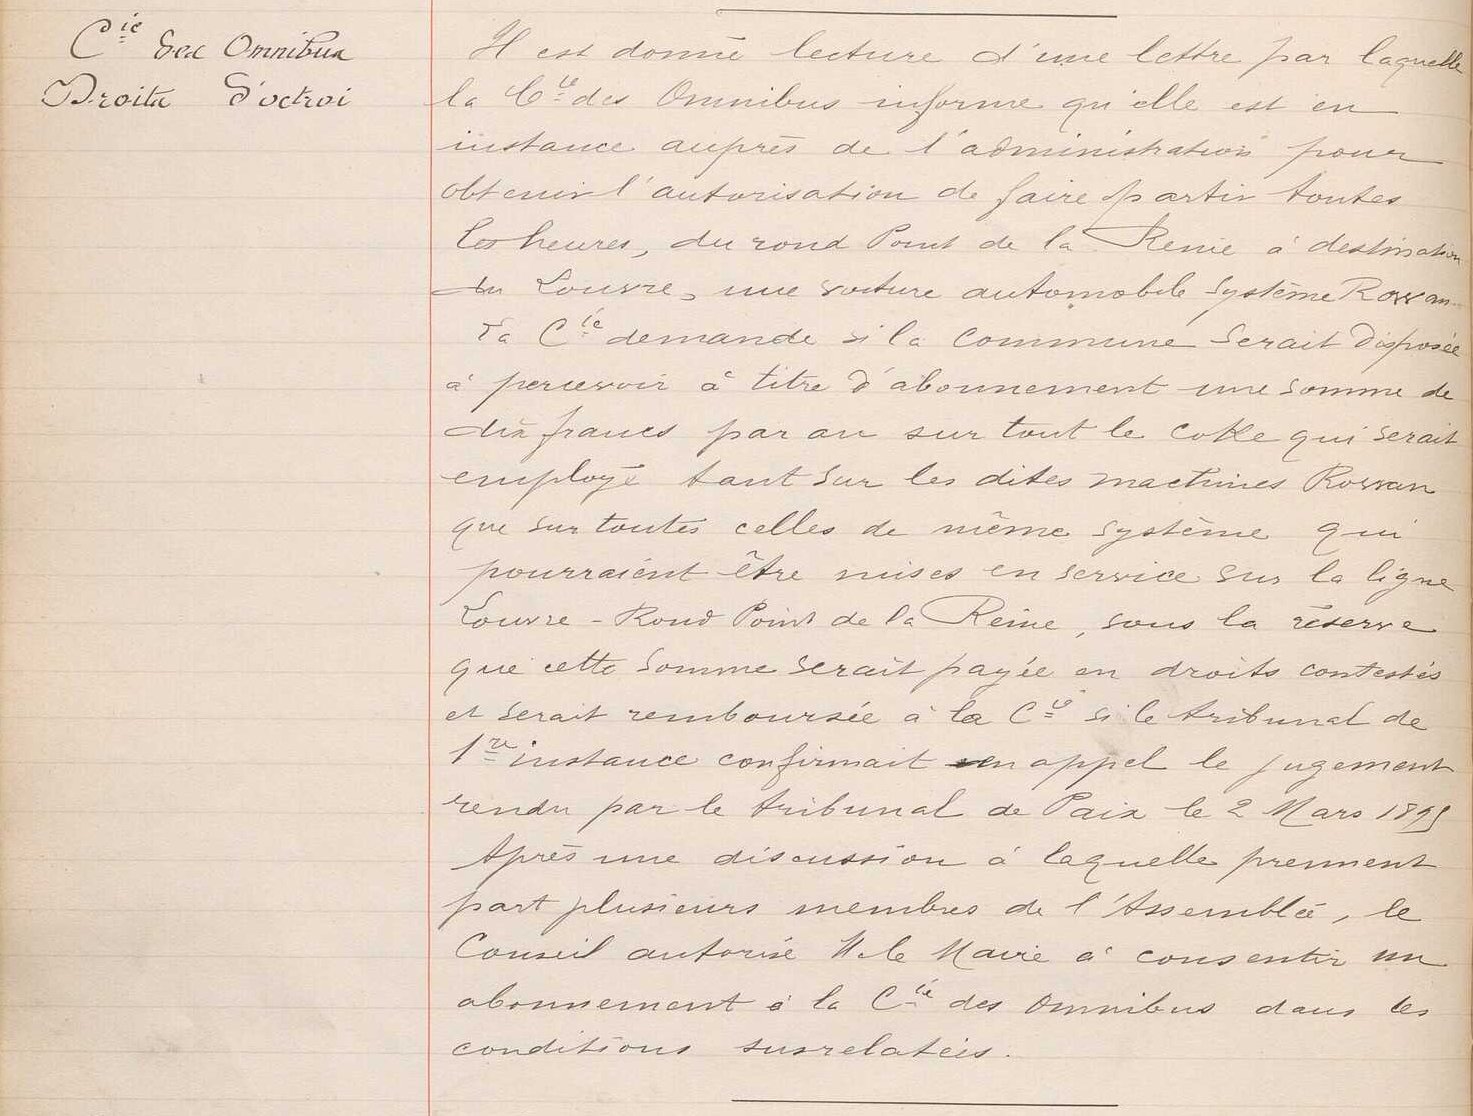 Cie des Omnibus
Droits d'octroi
Il est donné lecture d'une lettre par laquelle
la Cie des Omnibus informe qu'elle est en
instance auprès de l'administration pour
obtenir l'autorisation de faire partir toutes
les heures, du rond Point de la Reine à destination
du Louvre, une voiture automobile système Rowan
La Cie demande si la Commune serait disposée
à percevoir à titre d'abonnement une somme de
dix francs par an sur tout le coke qui serait
employé tant sur les dites machines Rowan
que sur toutes celles de même système qui
pourraient être mises en service sur la ligne
Louvre - Rond Point de la Reine, sous la réserve
que cette somme serait payée en droits contestés
et serait remboursée à la Cie si le tribunal de
1re instance confirmait en appel le jugement
rendu par le tribunal de Paix le 2 Mars 1895
Après une discussion à laquelle prennent
part plusieurs membres de l'Assemblée, le
Conseil autorise M. le Maire à consentir un
abonnement à la Cie des Omnibus dans les
conditions susrelatées.